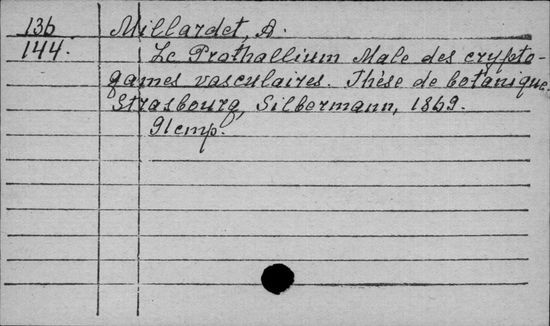 136 Millardet, A.
144. Le Prothallium Male des crypto-
games vasculaires. Thèse de botanique.
Strasbourg, Silbermann, 1869.
91 стр.